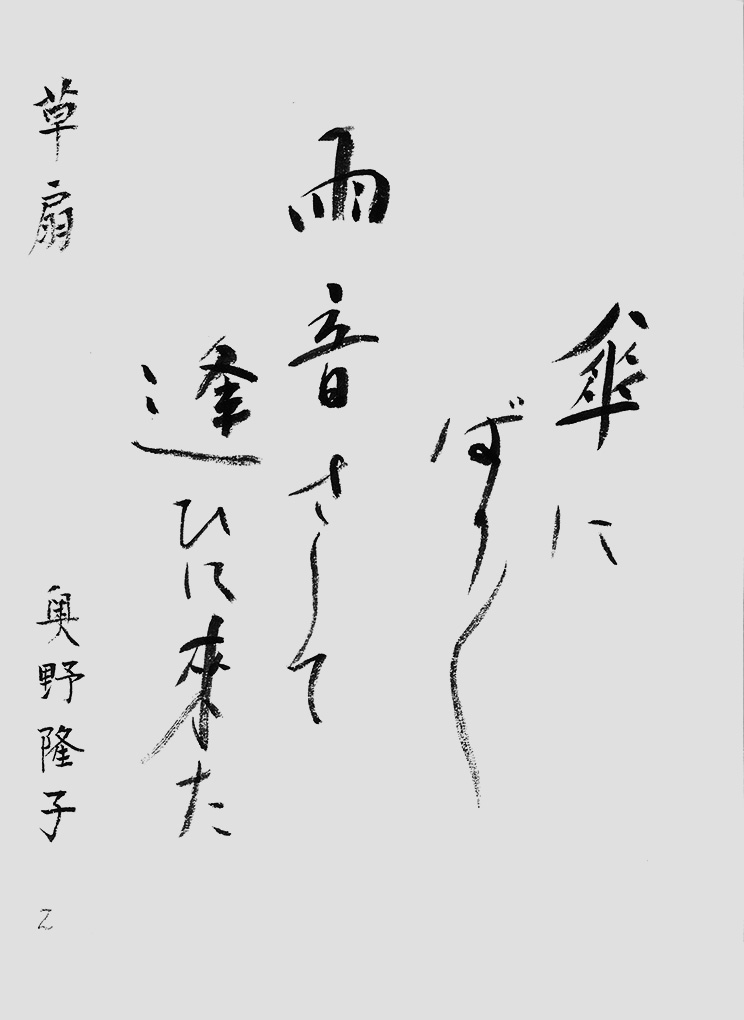 傘に
ばり〱
雨音さして
逢ひに來た
草扇 奥野隆子